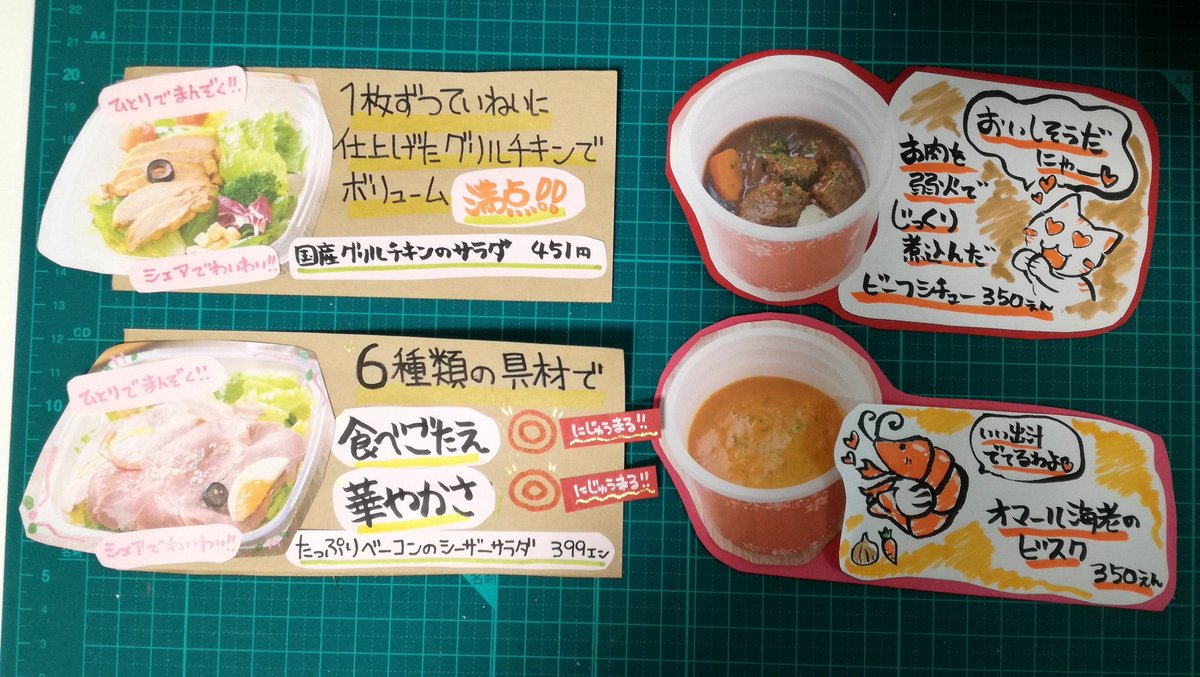 ひとりでまんぞく!!
1枚ずつていねいに
仕上げたグリルチキンで
ボリューム 満点!!
シェアでわいわい!!
国産グリルチキンのサラダ 451円
ひとりでまんぞく!!
6種類の具材で
食べごたえ ◎ にじゅうまる!!
華やかさ ◎ にじゅうまる!!
シェアでわいわい!!
たっぷりベーコンのシーザーサラダ 399エン
おいしそうだ
にゃー
お肉を
弱火で
じっくり
煮込んだ
ビーフシチュー 350えん
いい出汁
でてるわよ
オマール海老の
ビスク
350えん
22
21
A4
20
19
18
17
14
13
12
CD
10
5
4
名刺